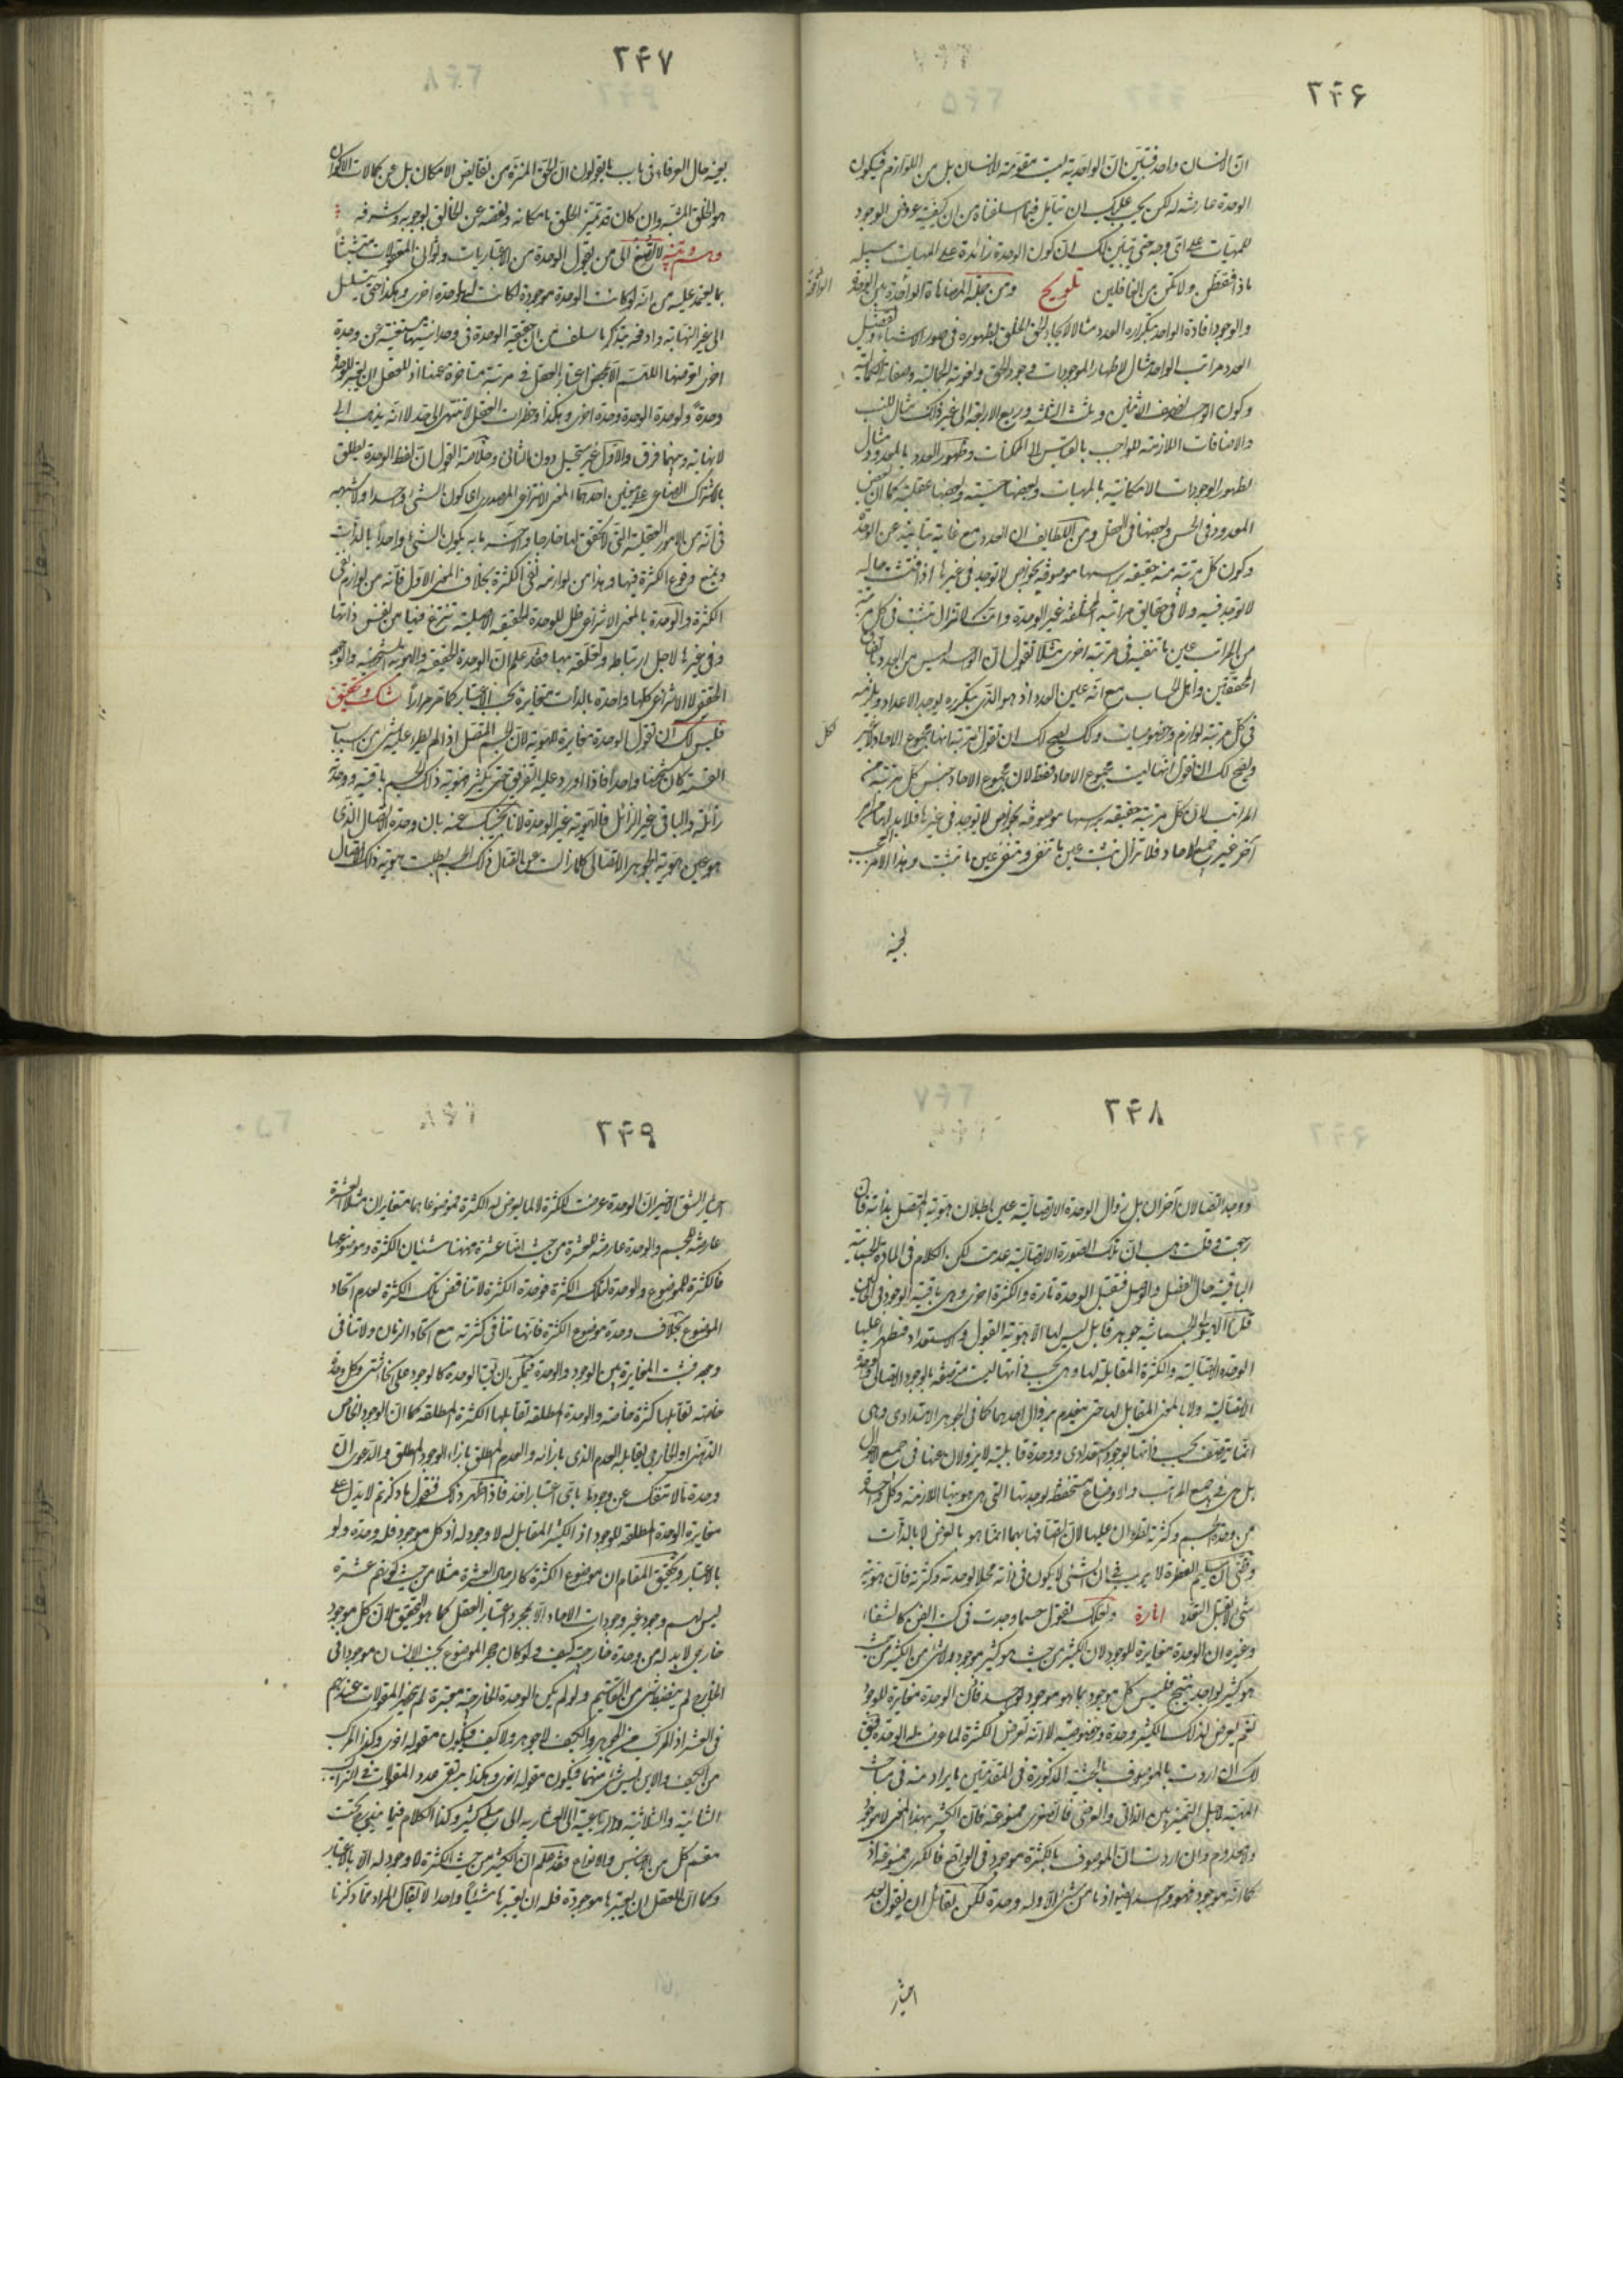 ٢٤٦
انّ الانسان واحد فتبيّن انّ الواحدية ليست مقوّمة للانسان بل من اللوازم فيكون
الوحدة عارضة له لكن يجب عليك ان تتأمل فيما اسلفناه من ان كيفية عروض الوجود
للمهيات على اىّ وجه حتى يتبيّن لك ان كون الوحدة زائدة على المهيات سبيله
ماذا فتفطّن ولا تكن من الغافلين تلويح ومن جملة المضاهاة الواقعة بين الوحدة
والوجود افادة الواحد بتكراره العدد مثالا لايجاد الحق الخلق بظهوره فى صور الاشياء وتفصيل
العدد مراتب الواحد مثال لاظهار الموجودات وجود الحق ونعوته الجمالية وصفاته الكمالية
وكون الواحد نصف الاثنين وثلث الثلثة وربع الاربعة الى غير ذلك مثال للنسب
والاضافات اللازمة للواجب بالقياس الى الممكنات وظهور العدد بالمعدود مثال
لظهور الوجودات الامكانية بالمهيات وبعضها حسّية وبعضها عقلية كما ان بعض
المعدود فى الحس وبعضها فى العقل ومن اللطايف ان العدد مع غاية تباينه عن الوحدة
وكون كل مرتبة منه حقيقة برأسها موصوفة بخواص لا توجد فى غيرها اذا فتشت حاله
لا توجد فيه ولا فى حقايق مراتبه المختلفة غير الوحدة وانك لا تزال تثبت فى كل مرتبة
من المراتب عين ما تنفيه فى مرتبة اخرى مثلا تقول ان الواحد ليس من العدد باتفاق
المحققين واهل الحساب مع انه عين العدد اذ هو الذى بتكرره يوجد الاعداد ويلزمه
فى كل مرتبة لوازم وخصوصيات وكك يصح لك ان تقول لكل مرتبة انها مجموع الاحاد لا غير
ويصح لك ان تقول انها ليست مجموع الاحاد فقط لان مجموع الاحاد جنس كل مرتبة من
المراتب لان كل مرتبة حقيقة برأسها موصوفة بخواص لا توجد فى غيرها فلا بد لها من امر
آخر غير جميع الاحاد فلا تزال تثبت عين ما تنفى وتنفى عين ما تثبت وهذا الامر العجيب
بعينه
٢٤٧
بعينه حال العرفاء فى باب ما يقولون انّ الحق المنزّه من نقايص الامكان بل عن كمالات الاكوان
هو الخلق المشبّه وان كان قد تميّز الخلق بامكانه ونقصه عن الخالق بوجوبه وشرفه
وهم وتنبيه لا تصغ الى من يقول الوحدة من الاعتباريات وثوانى المعقولات متشبثا
بما يعتمد عليه من انه لو كانت الوحدة موجودة لكانت لها وحدة اخرى وهكذا حتى يتسلسل
الى غير النهاية وادفعه بتذكر ما سلف من ان حقيقة الوحدة فى وحدانيتها مستغنية عن وحدة
اخرى تعرضها اللهم الا بمحض اعتبار العقل فى مرتبة متاخرة عنها اذ للعقل ان يعتبر للوحدة
وحدة ولوحدة الوحدة وحدة اخرى وهكذا وخطرات العقل لا تنتهى الى حد لا انه يذهب الى
لا نهاية وبينهما فرق والاول غير مستحيل دون الثانى وخلاصة القول ان لفظ الوحدة يطلق
بالاشتراك الصناعى على معنيين احدهما المعنى الانتزاعى المصدرى اى كون الشئ واحدا ولا شبهة
فى انه من الامور العقلية التى لا تحقق لها خارجا والاخر ما به يكون الشئ واحدا بالذات
ويمنع وقوع الكثرة فيها وهذا من لوازمه نفى الكثرة بخلاف المعنى الاول فانه من لوازم نفى
الكثرة والوحدة بالمعنى الانتزاعى ظل للوحدة الحقيقية الاصلية تنتزع فيها من نفس ذاتها
وفى غيرها لاجل ارتباطه وتعلقه بها فقد علم ان الوحدة الحقيقية والهوية الشخصية والوجود
الحقيقى لا الانتزاعى كلها واحدة بالذات متغايرة بحسب الاعتبار كما مر مرارا شك وتحقيق
فليس لك ان تقول الوحدة مغايرة للهوية لان الجسم المتصل اذا لم يطرا عليه شئ من اسباب
القسمة كان شخصا واحدا فاذا اورد عليه التفريق حتى تكثر فهوية ذلك الجسم باقية ووحدته
زائلة والباقى غير الزائل فالهوية غير الوحدة لانا نجيبك عنه بان وحدة الاتصال الذى
هو عين هوية الجوهر الاتصالى كلما زالت عن اتصال ذلك الجسم بطلت هوية ذلك الاتصال
٢٤٨
ووجد اتصالان آخران بل زوال الوحدة الاتصالية عين بطلان هوية المتصل بذاته فان
رجعت وقلت هب ان تلك الصورة الاتصالية عدمت لكن الكلام فى المادة الجسمانية
الباقية حال الفصل والوصل فتقبل الوحدة تارة والكثرة اخرى وهى باقية الوجود فى الحالين
قلت الهيولى الجسمانية جوهر قابل ليس لها الا هوية القبول والاستعداد فتطرا عليها
الوحدة الاتصالية والكثرة المقابلة لها وهى بحسب ذاتها ليست متصفة بالوجود الاتصالى والوحدة
الاتصالية ولا بالمعنى المقابل لها حتى ينعدم بزوال احدهما كما فى الجوهر الامتدادى وهى
انما يتصف بحسب ذاتها بوجود استعدادى ووحدة قابلية لا يزولان عنها فى جميع الاحوال
بل هى فى جميع المراتب والاوضاع مستحفظة لوحدتها التى هى هويتها اللازمة وكل واحدة
من وحدة الجسم وكثرته تطرءان عليها لان اتصافها بهما انما هو بالعرض لا بالذات
وظنى ان سليم الفطرة لا يريب فى ان الشئ لا يكون فى ذاته محلا لوحدته وكثرته فان هوية
شئ لا تقبل التعدد انارة ولعلك تقول حسبما وجدت فى كتب الفن كالشفاء
وغيره ان الوحدة مغايرة للوجود لان الكثير من حيث هو كثير موجود ولا شئ من الكثير من حيث
هو كثير بواحد ينتج فليس كل موجود بما هو موجود بواحد فاذن الوحدة مغايرة للوجود
نعم يعرض لذلك الكثير وحدة وخصوصية لا انه تعرض الكثرة لما عرضت له الوحدة فيق
لك ان اردت بالموصوف بالحيثية المذكورة فى المقدمتين ما يراد منه فى مباحث
المهية لاجل التميز بين الذاتى والعرضى فالصغرى ممنوعة فان الكثير بهذا المعنى لا موجود
ولا معدوم وان اردت ان الموصوف بالكثرة موجود فى الواقع فالكبرى ممنوعة اذ
كما انه موجود فهو واحد ايضا اذ ما من شئ الا وله وحدة لكن لقائل ان يقول بعد
اختيار
٢٤٩
اختيار الشق الاخير ان الوحدة عرضت للكثرة لا لما يعرض له الكثرة فموضوعاهما متغايران مثلا العشرة
عارضة للجسم والوحدة عارضة للعشرة من حيث انها عشرة فههنا شيئان الكثرة وموضوعها
فالكثرة للموضوع والوحدة لتلك الكثرة فوحدة الكثرة لا تناقض تلك الكثرة لعدم اتحاد
الموضوع بخلاف وحدة موضوع الكثرة فانها تنافى كثرته مع اتحاد الزمان ولا تنافى
وجوده فثبت المغايرة بين الوجود والوحدة فيمكن ان يق الوحدة كالوجود على انحاء شتى وكل وحدة
خاصة تقابلها كثرة خاصة والوحدة المطلقة تقابلها الكثرة المطلقة كما ان الوجود الخاص
الذهنى او الخارجى يقابله العدم الذى بازائه والعدم المطلق بازاء الوجود المطلق والدعوى ان
وحدة ما لا تنفك عن وجود ما باى اعتبار اخذ فاذا ظهر ذلك فنقول ما ذكرتم لا يدل على
مغايرة الوحدة المطلقة للوجود اذ الكثير المقابل له لا وجود له اذ كل موجود فله وحدة ولو
بالاعتبار وتحقيق المقام ان موضوع الكثرة كالرجال العشرة مثلا من حيث كونهم عشرة
ليس لهم وجود غير وجودات الاحاد الا بمجرد اعتبار العقل كما هو التحقيق لان كل موجود
خارجى لا بد له من وحدة خارجية كيف ولو كان الحجر الموضوع بجنب الانسان موجودا فى
الخارج لم ينضبط شئ من التقاسيم ولو لم يكن الوحدة الخارجية معتبرة لم تنحصر المقولات عندهم
فى العشر اذ المركب من الجوهر والكيف لا جوهر ولا كيف فيكون مقولة اخرى وكذا المركب
من الكيف والاين ليس شئ منهما فيكون مقولة اخرى وهكذا يرتقى عدد المقولات فى التراكيب
الثنائية والثلاثية والرباعية الى العشارية الى مبلغ كثير وكذا الكلام فيما يندرج تحت
مقسم كل من الاجناس والانواع فقد علم ان الكثير من حيث الكثرة لا وجود له الا بالاعتبار
وكما ان للعقل ان يعتبرها موجودة فله ان يعتبرها شيئا واحدا لا يقال المراد مما ذكرنا